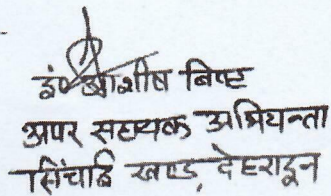 इं० आशीष बिष्ट
अपर सहायक अभियन्ता
सिंचाई खण्ड, देहरादून